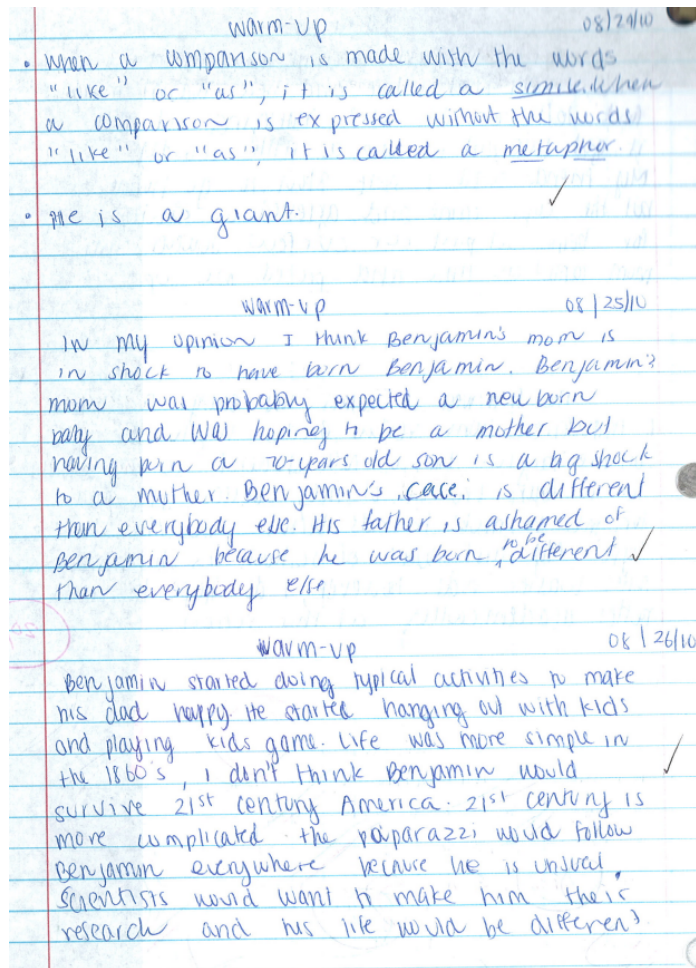 warm-up 08/24/10
• When a comparison is made with the words
"like" or "as", it is called a simile. When
a comparison is expressed without the words
"like" or "as", it is called a metaphor.
• He is a giant.
warm-up 08/25/10
In my opinion I think Benjamin's mom is
in shock to have born Benjamin. Benjamin's
mom was probably expected a new born
baby and was hoping to be a mother but
having born a 70-years old son is a big shock
to a mother. Benjamin's case, is different
than everybody else. His father is ashamed of
Benjamin because he was born, to be different ✓
than everybody else
warm-up 08/26/10
Benjamin started doing typical activities to make
his dad happy. He started hanging out with kids
and playing kids game. Life was more simple in
the 1860's, I don't think Benjamin would
survive 21st century America. 21st century is
more complicated. the paparazzi would follow
Benjamin everywhere because he is unsual.
Scientists would want to make him their
research and his life would be different.